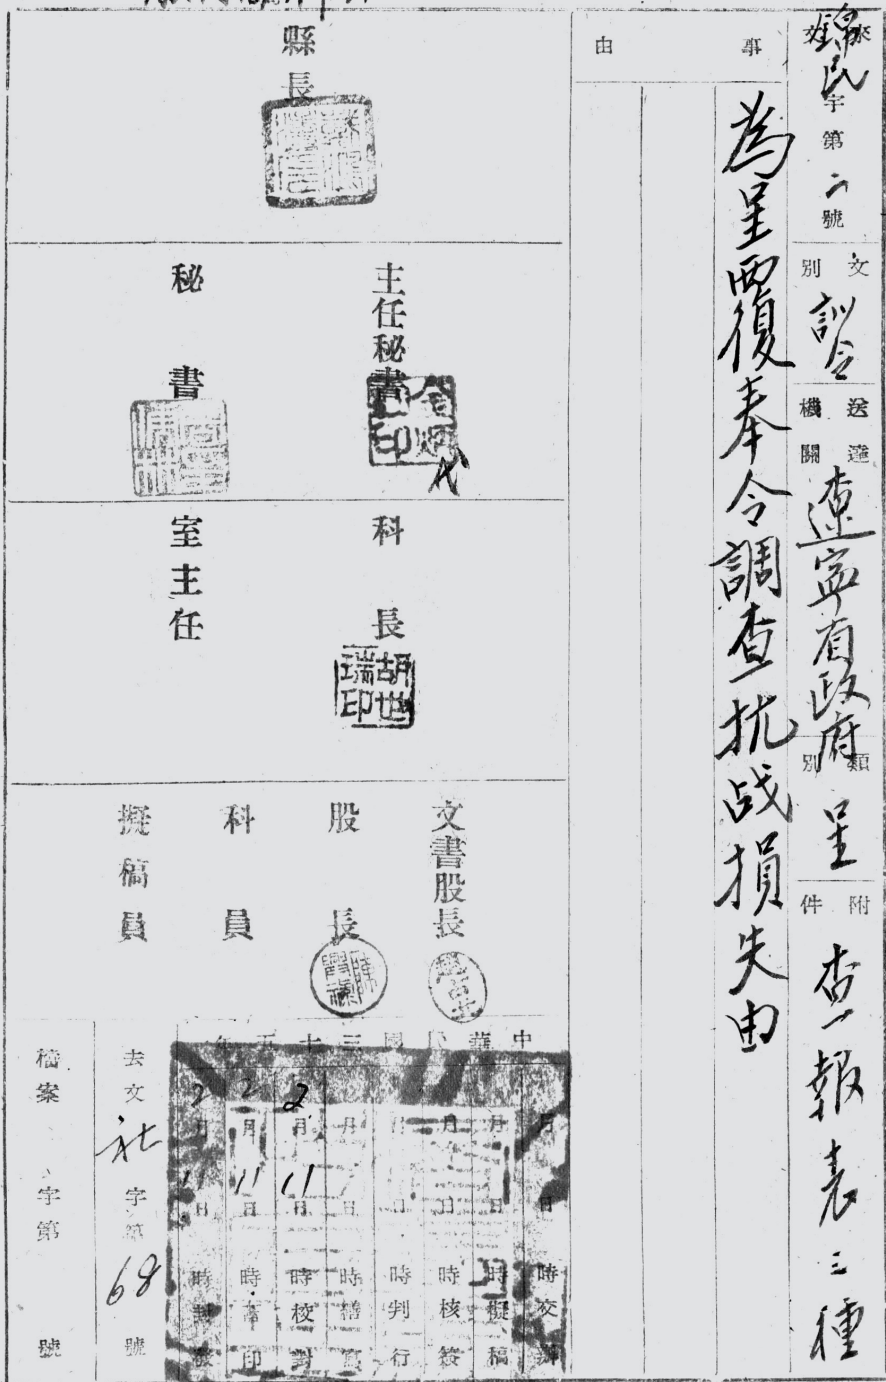 來文
錦民字第二號
文別
訓令
送達機關
遼寧省政府
類別
呈
附件
查報表三種
事由
為呈覆奉令調查抗战損失由
縣長
主任秘書
代
秘書
科長
胡世瑞印
室主任
文書股長
股長
科員
擬稿員
中華民國三十五年
月 日 時交辦
月 日 時擬稿
月 日 時核簽
月 日 時判行
月 日 時繕寫
2月11日 時校對
2月11日 時蓋印
2月11日 時封發
去文社字第68號
檔案 字第 號